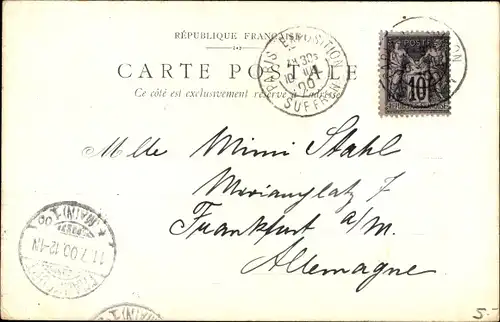 RÉPUBLIQUE FRANÇAISE
CARTE POSTALE
Ce côté est exclusivement réservé à l'adresse
PARIS EXPOSITION
SUFFREN
POSTE
10
Mlle Mimi Stahl
Marianplatz 7
Frankfurt a/M.
Allemagne
(MAIN) 1
11.7.00.12-1N
(MAIN) 1
5.-